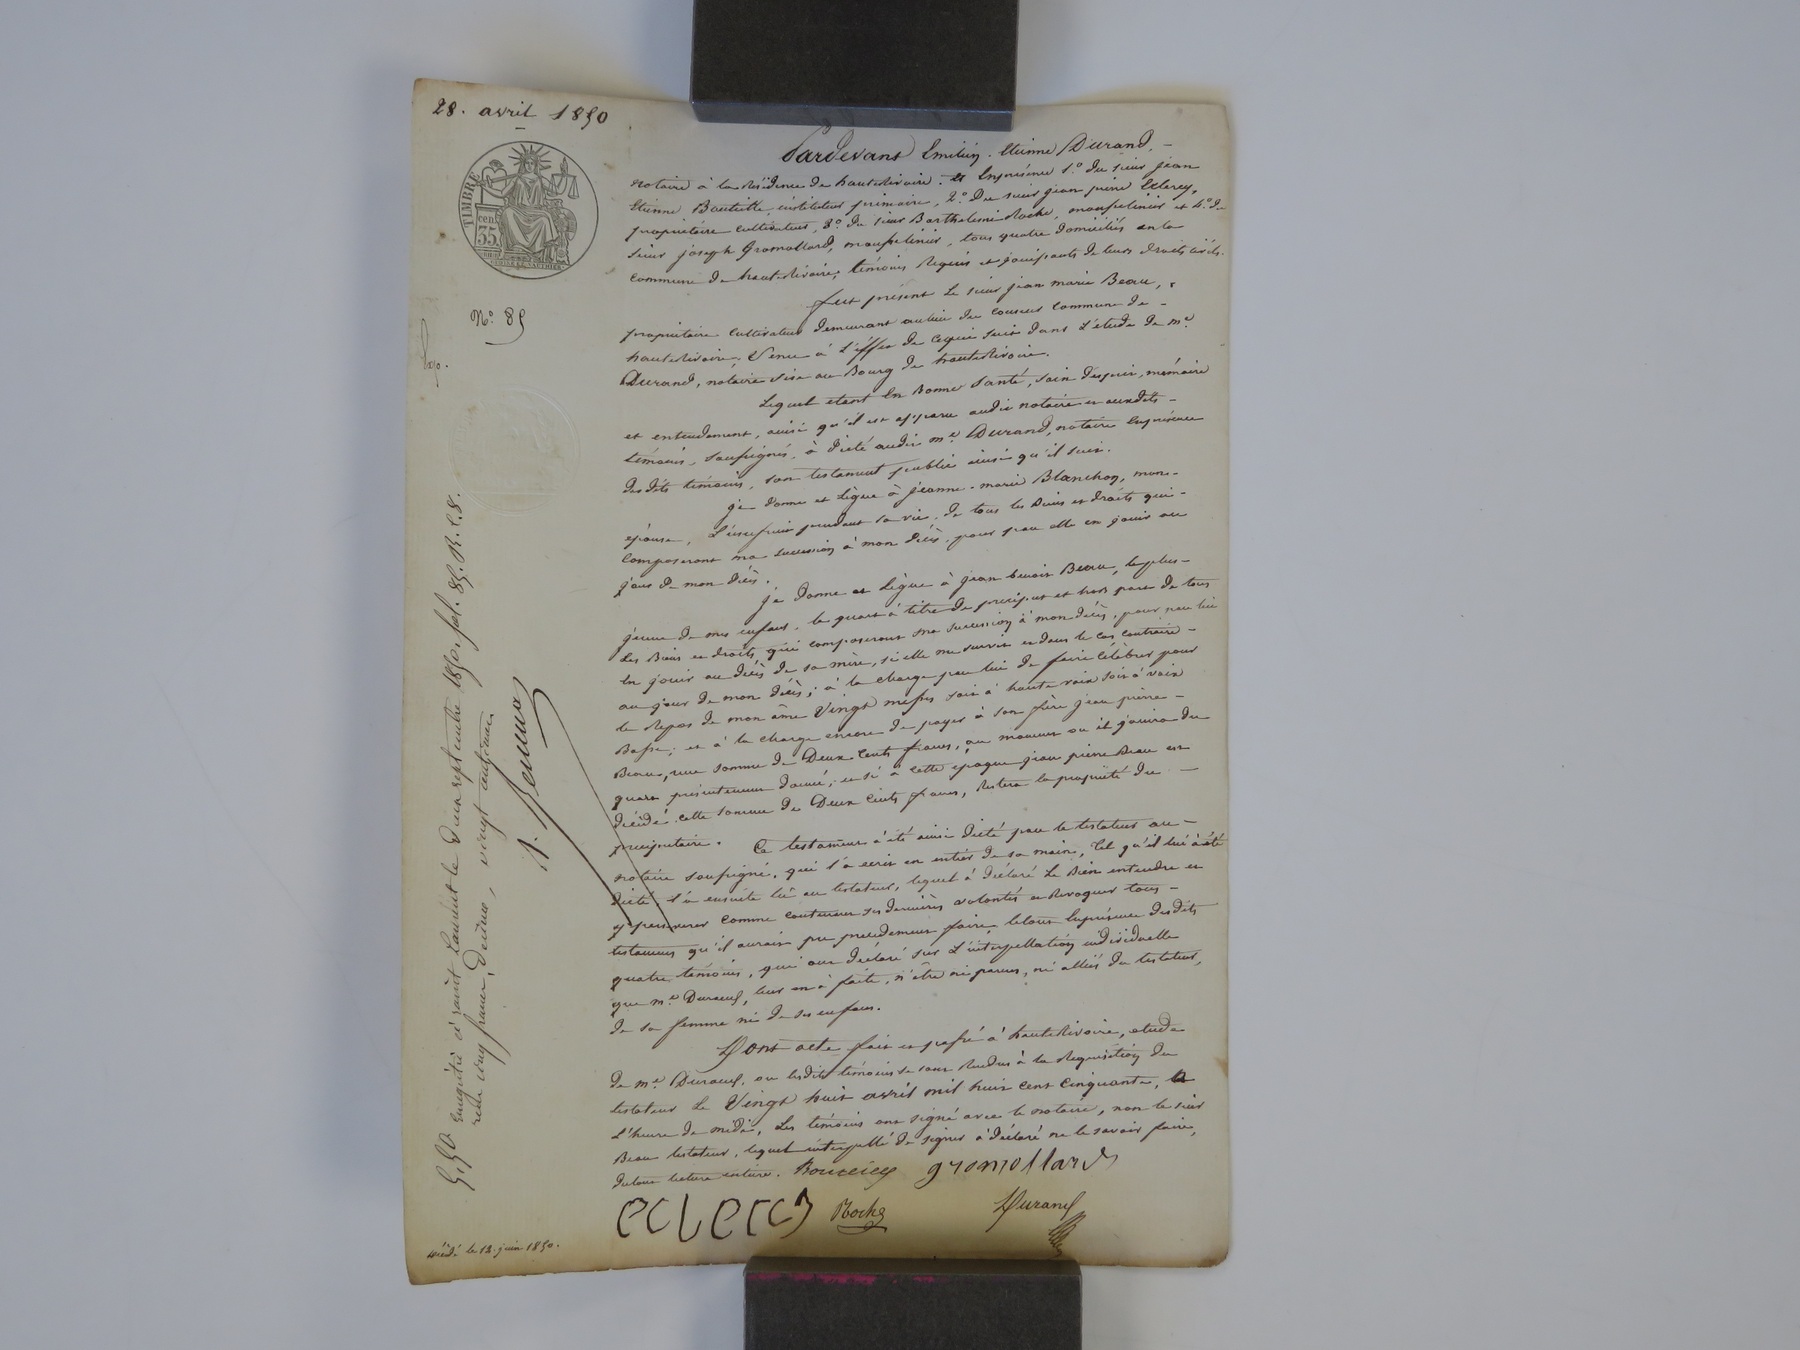 28. avril 1850
TIMBRE
cen.
35
N.° 85
Pardevant Emilien-Etienne Durand, -
notaire à la Résidence de hauterivoire. et Enprésence 1.° du sieur jean
Etienne Bouteille, instituteur primaire, 2.° Du sieur jean pierre Eclercy,
propriétaire cultivateur, 3.° du sieur Barthelemi Roche, mousselinier et 4.° du
sieur joseph Gromollard, mousselinier, tous quatre domiciliés en la
Commune de hauterivoire, témoins Requis et jouissants de leurs droits civils.
fut présent Le sieur jean marie Beau,
propriétaire Cultivateur demeurant au lieu du Commune de -
hauterivoire, Venu à L'effet de cequi suit dans L'étude de m.e
Durand, notaire sise au Bourg de hauterivoire.
Lequel etant En Bonne Santé, sain d'esprit, mémoire
et entendement, ainsi qu'il est apparu audit notaire et auxdits -
témoins, soussignés, à dicté audit m.e Durand, notaire Enprésence
desdits témoins, son testament public ainsi qu'il suit.
je donne et Lègue à jeanne-marie Blanchon, mon -
épouse, L'usufruit pendant sa vie, de tous les Biens et droits qui -
Composeront ma succession à mon décès, pour par elle en jouir au
jour de mon décès.
je donne et Lègue à jean benoit Beau, le plus -
jeune de mes enfans, le quart à titre de preciput et hors part de tous
les Biens et droits qui composeront ma succession à mon décès, pour par lui
En jouir au décès de sa mère, si elle me survit et dans le cas contraire -
au jour de mon décès; à la charge par lui de faire célèbrer pour
le Repos de mon âme Vingt messes soit à haute voix soit à voix
Basse; et à la charge encore de payer à son frère jean pierre -
Beau, une somme de Deux Cents francs, au moment ou il jouira du
quart présentement donné; et si à cette époque jean pierre Beau est
décédé cette somme de Deux Cents francs, Restera la propriété du -
preciputaire.
Ce testament à été ainsi dicté par le testateur au -
notaire soussigné, qui l'à ecrit en entier de sa main, tel qu'il lui à été
Dicté, l'à ensuite lu au testateur, lequel à déclaré Le Bien entendre et
y perseverer comme contenant ses dernières volontés et Revoquer tous -
testamens qu'il aurait pu precedemment faire, letout Enprésence desdits
quatre témoins, qui ont déclaré sur L'interpellation individuelle
que m.e Durand, leur en à faite, n'être ni parens, ni alliés du testateur,
de sa femme ni de ses enfans.
Dont acte fait et passé à hauterivoire, etude
de m.e Durand, ou lesdits témoins se sont Rendus à la Requisition du
testateur Le Vingt huit avril mil huit cent Cinquante, à
L'heure de midi, Les témoins ont signé avec le notaire, non le sieur
Beau testateur, lequel interpellé de signer à déclaré ne le savoir faire,
dutout lecture entière. Bouteille gromollard
eclercy Roche Durand
Enregistré à saint Laurent le Dix septembre 1850, fol. 85. R. C. 8.
reçu cinq francs, décime, vingt centimes
5,50
décédé le 12 juin 1850.